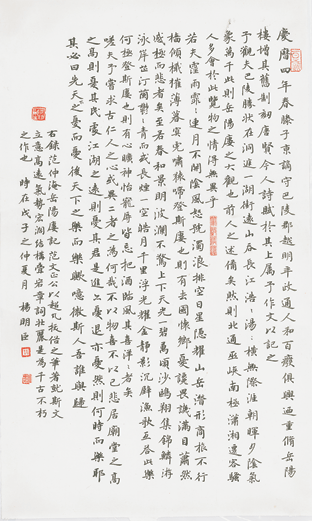 慶曆四年春滕子京謫守巴陵郡越明年政通人和百廢俱興迺重脩岳陽
樓增其舊制刻唐賢今人詩賦於其上屬予作文以記之
予觀夫巴陵勝狀在洞庭一湖銜遠山吞長江浩浩湯湯橫無際涯朝暉夕陰氣
象萬千此則岳陽樓之大觀也前人之述備矣然則北通巫峽南極瀟湘遷客騷
人多會於此覽物之情得無異乎
若夫霪雨霏霏連月不開陰風怒號濁浪排空日星隱耀山岳潛形商旅不行
檣傾楫摧薄暮冥冥虎嘯猿啼登斯樓也則有去國懷鄉憂讒畏譏滿目蕭然
感極而悲者矣至若春和景明波瀾不驚上下天光一碧萬頃沙鷗翔集錦鱗游
泳岸芷汀蘭郁郁青青而或長煙一空皓月千里浮光耀金靜影沉璧漁歌互答此樂
何極登斯樓也則有心曠神怡寵辱皆忘把酒臨風其喜洋洋者矣
嗟夫予嘗求古仁人之心或異二者之為何哉不以物喜不以己悲居廟堂之高
則憂其民處江湖之遠則憂其君是進亦憂退亦憂然則何時而樂耶
其必曰先天下之憂而憂後天下之樂而樂歟噫微斯人吾誰與歸
右錄范仲淹岳陽樓記范文正公以超凡
立意高遠氣勢宏
之作也 時在戊子之仲夏月 楊明臣